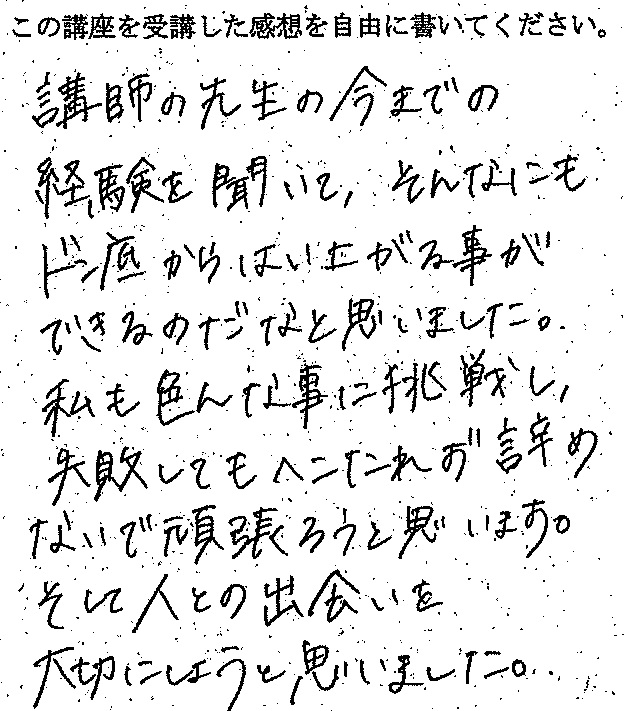 この講座を受講した感想を自由に書いてください。
講師の先生の今までの
経験を聞いて，そんなにも
ドン底からはい上がる事が
できるのだなと思いました。
私も色んな事に挑戦し，
失敗してもへこたれず諦め
ないで頑張ろうと思います。
そして人との出会いを
大切にしようと思いました。